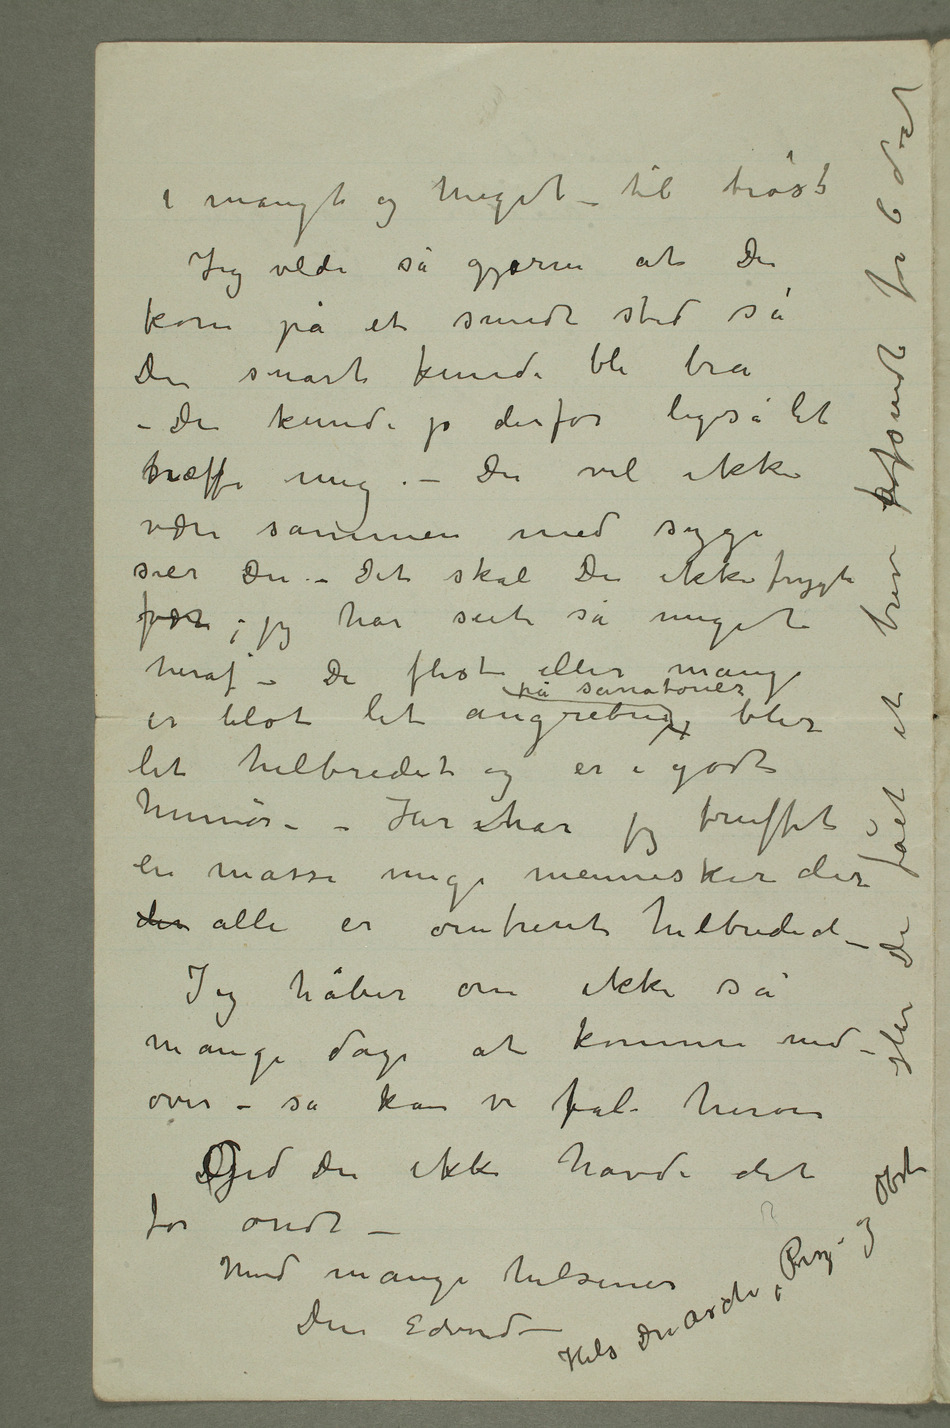 i mangt og meget – til trøst
Jeg vilde så gjerne at Du
kom på et sundt sted så
Du snart kunde bli bra
– Du kunde jo derfor ligså let
træffe mig. – Du vil ikke
være sammen med syge
sier Du – Det skal Du ikke frygte
for; jeg har seet så meget
heraf – De fleste eller mange
på sanatorier
er blot let angrebne, blir
let helbredet og er i godt
humør – – Her har jeg truffet
en masse unge mennesker der
der alle er omtrent helbredede –
Jeg håber om ikke så
mange dage at komme ned-
over – så kan vi tale herom
Gid Du ikke havde det
for ondt –
Med mange hilsener
Din Edvard –
Hils Drasche, og Obst
eller De fået et brev afsendt for 6 dage